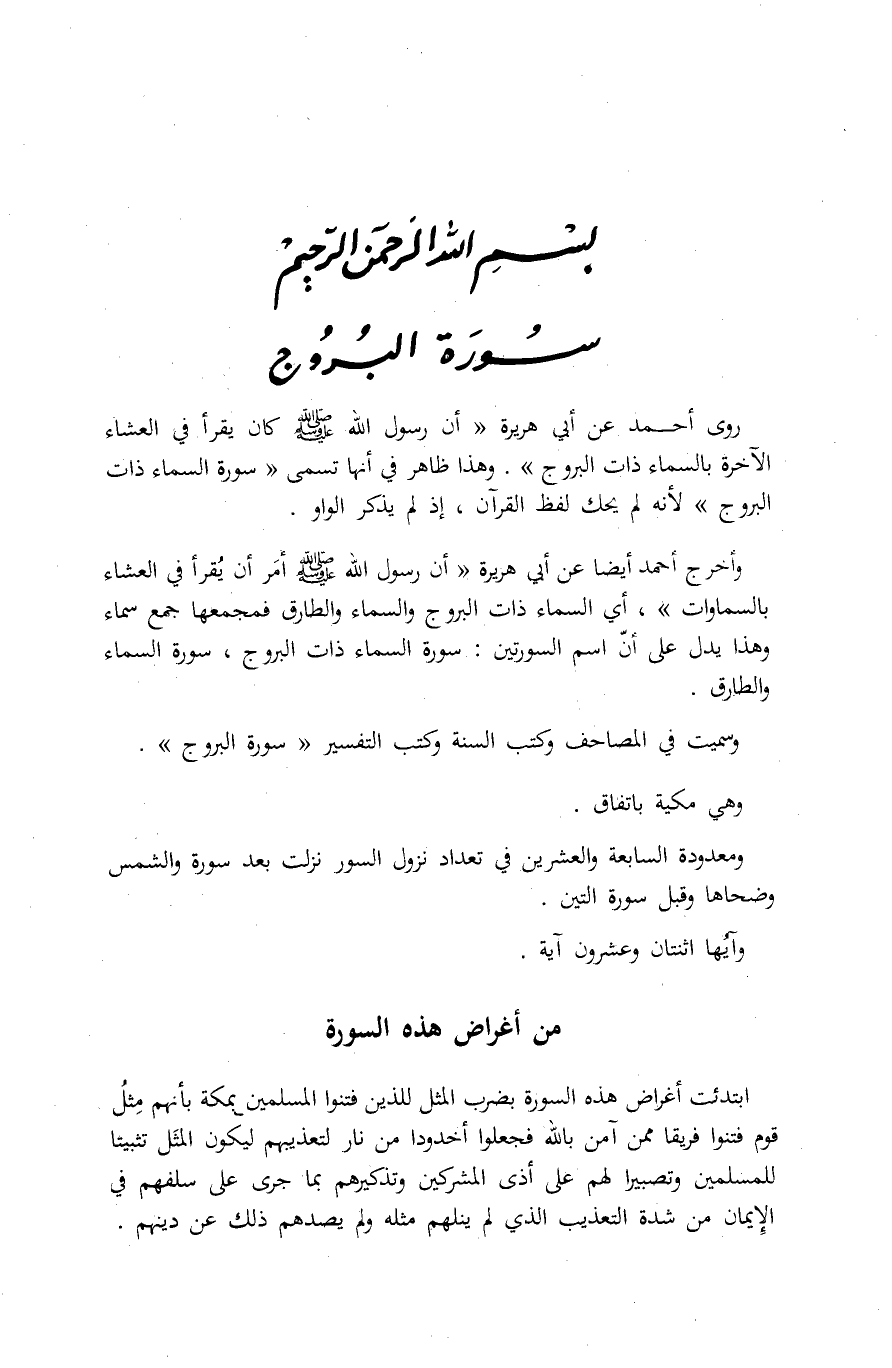 بِسْمِ اللهِ الرَّحْمَنِ الرَّحِيمِ
سُورَة البُرُوج
روى أحـمد عن أبي هريرة « أن رسول الله ﷺ كان يقرأ في العشاء
الآخرة بالسماء ذات البروج » . وهذا ظاهر في أنها تسمى « سورة السماء ذات
البروج » لأنه لم يحك لفظ القرآن ، إذ لم يذكر الواو .
وأخرج أحمد أيضا عن أبي هريرة « أن رسول الله ﷺ أمَر أن يُقرأ في العشاء
بالسماوات » ، أي السماء ذات البروج والسماء والطارق فمجمعها جمع سماء
وهذا يدل على أنّ اسم السورتين : سورة السماء ذات البروج ، سورة السماء
والطارق .
وسميت في المصاحف وكتب السنة وكتب التفسير « سورة البروج » .
وهي مكية باتفاق .
ومعدودة السابعة والعشرين في تعداد نزول السور نزلت بعد سورة والشمس
وضحاها وقبل سورة التين .
وآيُها اثنتان وعشرون آية .
من أغراض هذه السورة
ابتدئت أغراض هذه السورة بضرب المثل للذين فتنوا المسلمين بمكة بأنهم مِثلُ
قوم فتنوا فريقا ممن آمن بالله فجعلوا أخدودا من نار لتعذيبهم ليكون المثَل تثبيتا
للمسلمين وتصبيرا لهم على أذى المشركين وتذكيرهم بما جرى على سلفهم في
الإِيمان من شدة التعذيب الذي لم ينلهم مثله ولم يصدهم ذلك عن دينهم .